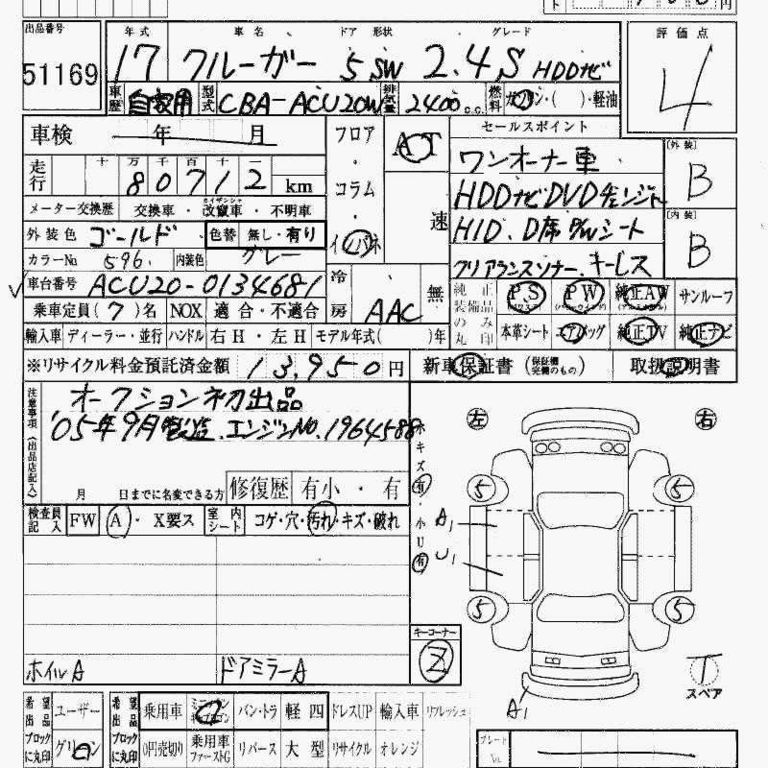 出品番号 51169
年式 車名 ドア 形状 グレード
17 クルーガー 5 SW 2.4S HDDナビ
評価点
4
車歴 自家用 型式 CBA-ACU20W 排気量 2400 c.c. 燃料 ガソリン・( )・軽油
車検 年 月
フロア・コラム・インパネ
AT
速
セールスポイント
ワンオーナー車
HDDナビDVDチェンジャー
HID、D席PWシート
クリアランスソナー、キーレス
[外装] B
[内装] B
走行 十万千百十一
80712 km
メーター交換歴 交換車・改竄車・不明車
外装色 ゴールド 色替 無し・有り
カラーNo 596 内装色 グレー
車台番号 ACU20-0134681
冷房 AAC
無
純正装備品のみ丸印
PS PW 純正AW サンルーフ
本革シート エアバッグ 純正TV 純正ナビ
乗車定員(7)名 NOX 適合・不適合
輸入車 ディーラー・並行 ハンドル 右H・左H モデル年式( )年
※リサイクル料金預託済金額 13,950円
新車保証書 (保証継続有効のもの) 取扱説明書
注意事項(出品店記入)
オークション初出品
'05年9月製造、エンジンNO.1964588
月 日までに名変できる方
修復歴 有小・有
検査員記入 FW A・X要ス
室内シート コゲ・穴・汚れ・キズ・破れ
キズ有・小U有
左 右
5 5
A1
U1
5 5
A1
T
スペア
キーコーナー
Z
ホイルA ドアミラーA
希望出品ブロックに丸印 ユーザー
グリーン
希望出品ブロックに丸印 乗用車 バン・トラ 軽四 ドレスUP 輸入車 リフレッシュ
0円売切り 乗用車ファーストG リバース 大型 リサイクル オレンジ